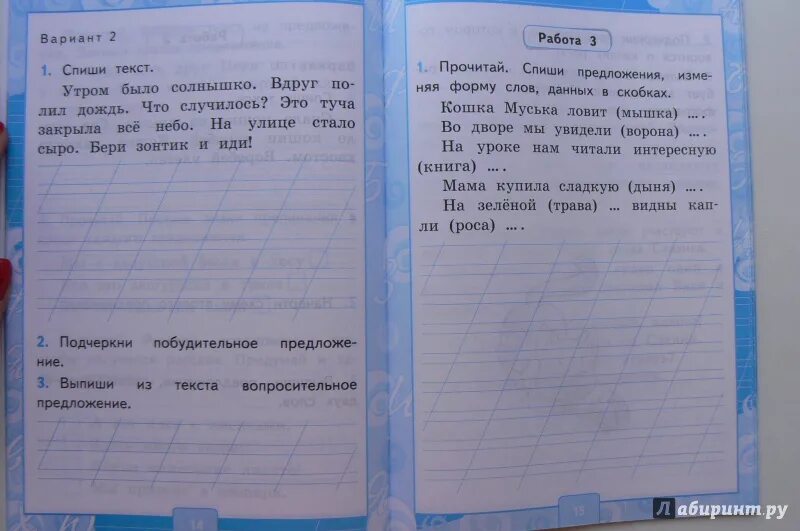 Вариант 2
1. Спиши текст.
Утром было солнышко. Вдруг по-
лил дождь. Что случилось? Это туча
закрыла всё небо. На улице стало
сыро. Бери зонтик и иди!
2. Подчеркни побудительное предложе-
ние.
3. Выпиши из текста вопросительное
предложение.
14
Работа 3
1. Прочитай. Спиши предложения, изме-
няя форму слов, данных в скобках.
Кошка Муська ловит (мышка) ... .
Во дворе мы увидели (ворона) ... .
На уроке нам читали интересную
(книга) ... .
Мама купила сладкую (дыня) ... .
На зелёной (трава) ... видны кап-
ли (роса) ... .
15
Лабиринт.ру